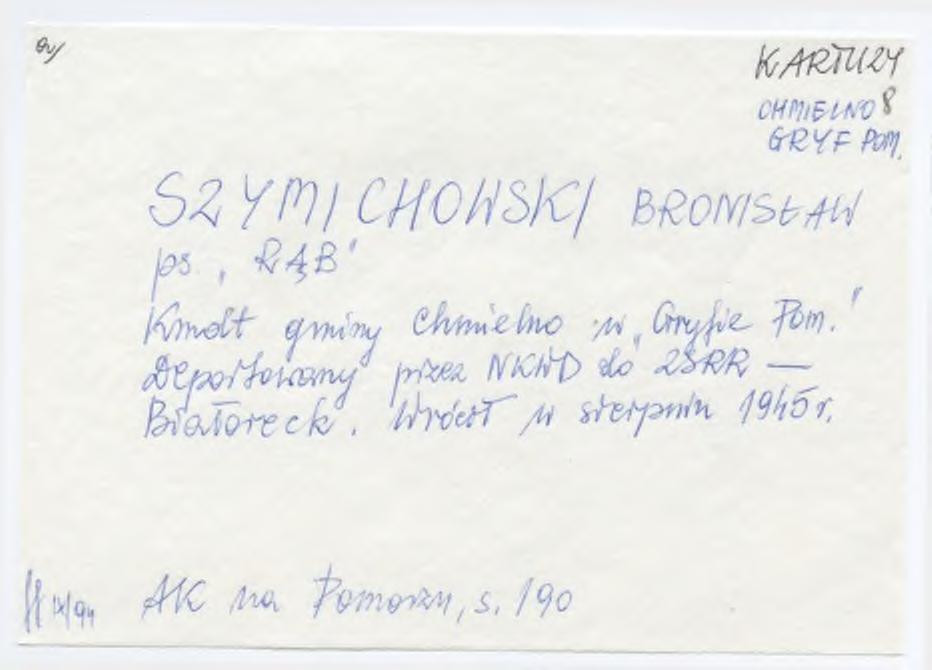 KARTUZY
CHMIELNO 8
GRYF POM.
SZYMICHOWSKI BRONISŁAW
ps. „RĄB"
Kmdt gminy Chmielno w „Gryfie Pom."
Deportowany przez NKWD do ZSRR —
Białoreck. Wrócił w sierpniu 1945 r.
IX/94 AK na Pomorzu, s. 190